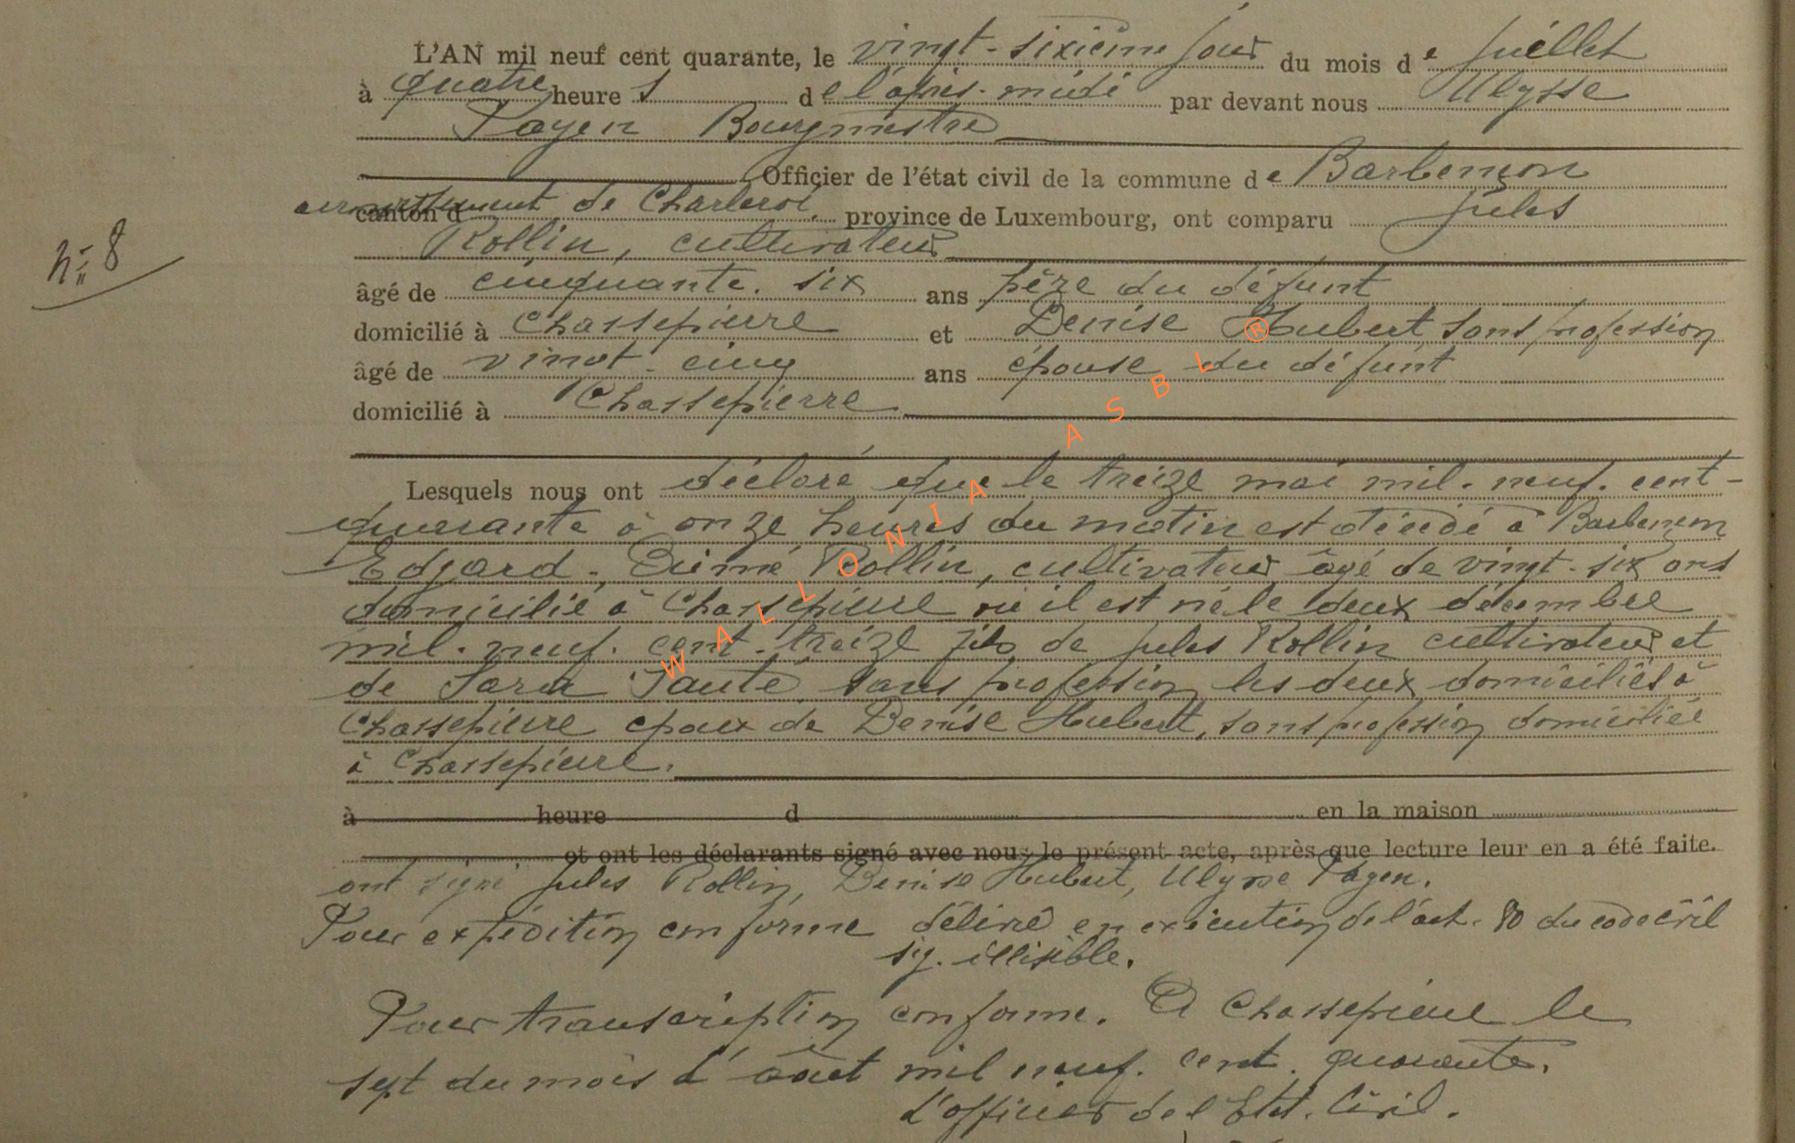 L'AN mil neuf cent quarante, le vingt-sixième jour du mois de Juillet
à quatre heures de l'après-midi par devant nous Ulysse
Payen Bourgmestre
Officier de l'état civil de la commune de Barbençon
canton d arrondissement de Charleroi, province de Luxembourg, ont comparu Jules
Rollin, cultivateur
N° 8
âgé de cinquante-six ans père du défunt
domicilié à Chassepierre et Denise Hubert, sans profession
âgé de vingt-cinq ans épouse du défunt
domicilié à Chassepierre
Lesquels nous ont déclaré que le treize mai mil-neuf-cent-
quarante à onze heures du matin est décédé à Barbençon
Edgard-Aimé Rollin, cultivateur âgé de vingt-six ans
domicilié à Chassepierre où il est né le deux décembre
mil-neuf-cent-treize fils de Jules Rollin cultivateur et
de sans profession les deux domiciliés à
Chassepierre époux de Denise Hubert, sans profession domiciliée
à Chassepierre.
à heure d en la maison
et ont les déclarants signé avec nous le présent acte, après que lecture leur en a été faite.
ont signé Jules Rollin, Denise Hubert, Ulysse Payen.
Pour expédition conforme délivré en exécution de l'art. 80 du code civil
sig. illisible.
Pour transcription conforme. A Chassepierre le
sept du mois d'août mil neuf-cent-quarante.
L'officier de l'Etat-Civil.
WALLONIA ASBL ®